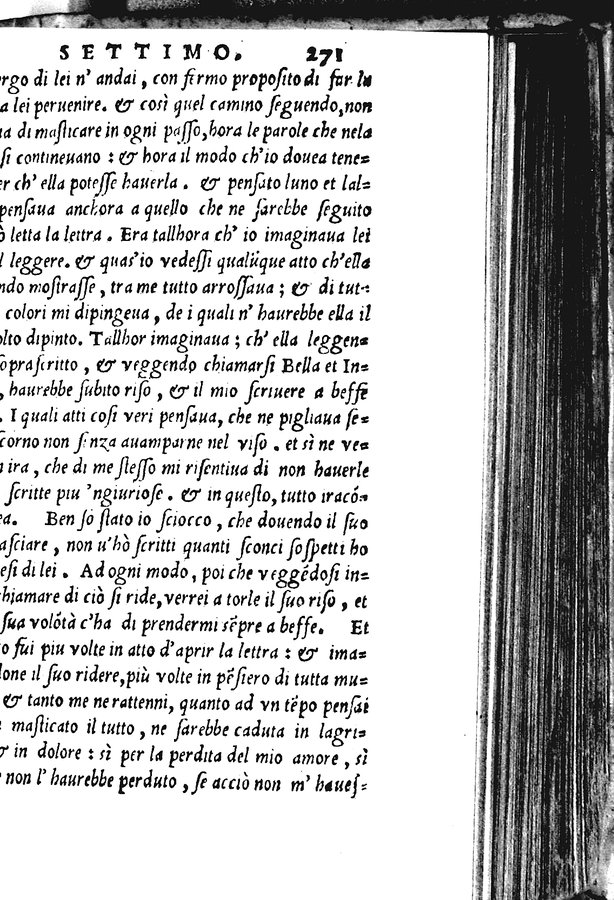 SETTIMO. 271
ergo di lei n' andai, con fermo proposito di far la
a lei peruenire. & così quel camino seguendo, non
ua di masticare in ogni passo, hora le parole che nela
si conteneuano : & hora il modo ch'io douea tene=
er ch' ella potesse hauerla. & pensato luno et lal=
pensaua anchora a quello che ne sarebbe seguito
ò letta la lettra. Era tallhora ch' io imaginaua lei
l leggere. & quas'io vedessi qualũque atto ch'ella
ndo mostrasse, tra me tutto arrossaua ; & di tut-
colori mi dipingeua, de i quali n' haurebbe ella il
olto dipinto. Tallhor imaginaua ; ch' ella leggen=
soprascritto, & veggendo chiamarsi Bella et In=
, haurebbe subito riso, & il mio scriuere a beffe
. I quali atti cosi veri pensaua, che ne pigliaua se=
corno non senza auamparne nel viso. et sì ne ve=
n ira, che di me stesso mi risentiua di non hauerle
scritte piu 'ngiuriose. & in questo, tutto iracõ=
ea. Ben sò stato io sciocco, che douendo il suo
asciare, non u'hò scritti quanti sconci sospetti ho
esi di lei. Ad ogni modo, poi che veggẽdosi in=
chiamare di ciò si ride, verrei a torle il suo riso, et
sua volõtà c'ha di prendermi sẽpre a beffe. Et
o fui piu volte in atto d'aprir la lettra : & ima=
done il suo ridere, più volte in pẽsiero di tutta mu=
& tanto me ne rattenni, quanto ad vn tẽpo pensai
masticato il tutto, ne sarebbe caduta in lagri=
& in dolore : sì per la perdita del mio amore, sì
e non l' haurebbe perduto, se acciò non m' haues=